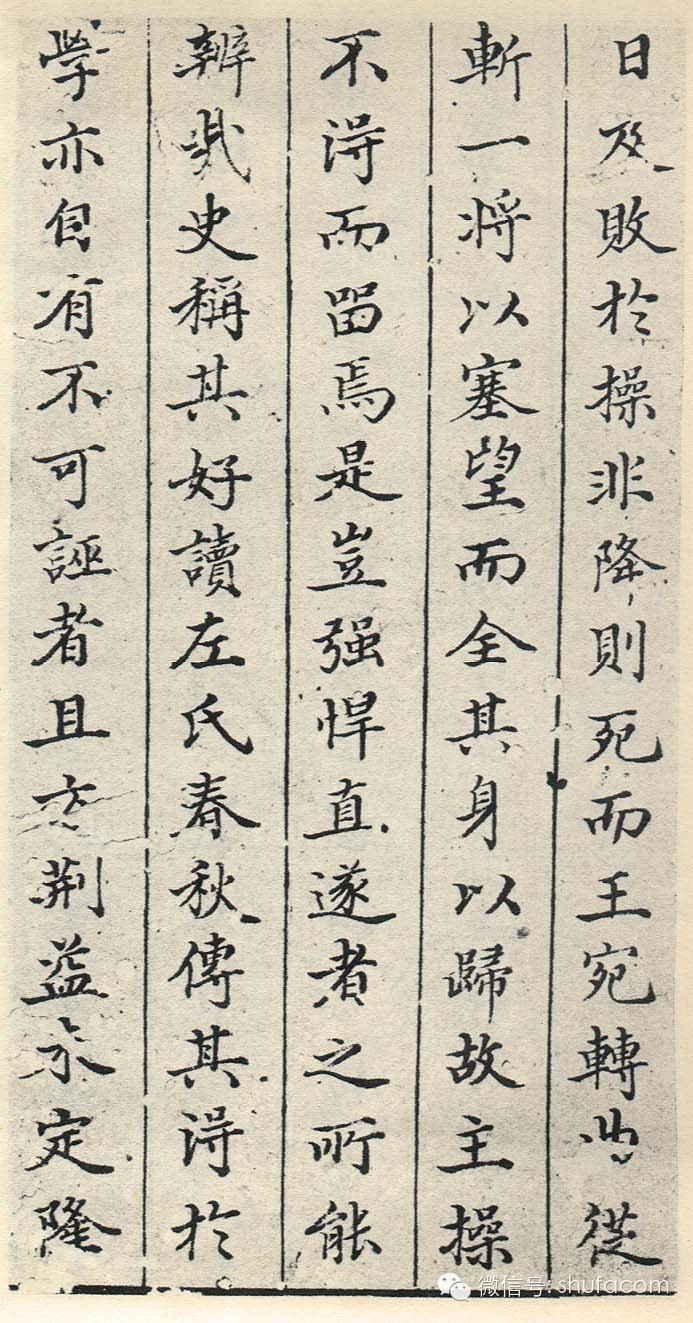 日及敗於操非降則死而王宛轉曲從
斬一將以塞望而全其身以歸故主操
不得而留焉是豈强悍直遂者之所能
辨哉史稱其好讀左氏春秋傳其得於
學亦自有不可誣者且方荆益未定隆
微信号: shufacom